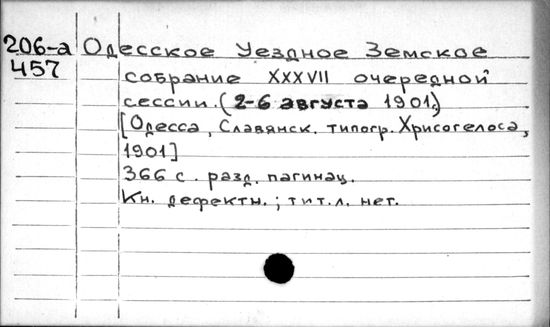 206-а Одесское Уездное Земское
457 собрание XXXVII очередной
сессии. (2-6 августа 1901.)
[Одесса, Славянск. типогр. Хрисогелоса,
1901]
366 с. разд. пагинац.
Кн. дефектн.; тит. л. нет.